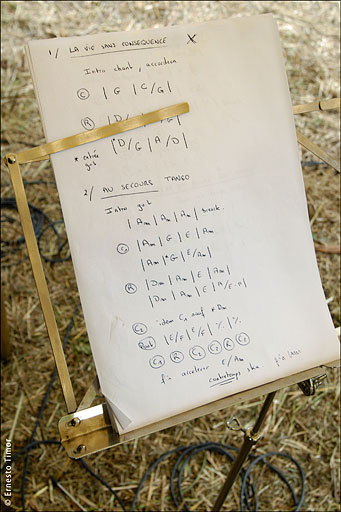 1/ LA VIE SANS CONSEQUENCE X
Intro chant, accordéon
C | G | C/G |
R | D/
* entrée gt | *D/G | A/D |
2/ AU SECOURS TANGO
Intro gt
| Am | Am | Am | break
C1 | Am | G | E | Am
| Am | *G | E/Am |
R | Dm | Am | E | Am |
| Dm | Am | E | A/E
C2 idem C1 sauf * Dm
Pont | E/F | E/F | % | %
C1 R C2 C2 R C
Fin accélérer E/Am
contretemps ska fin
© Ernesto Timor